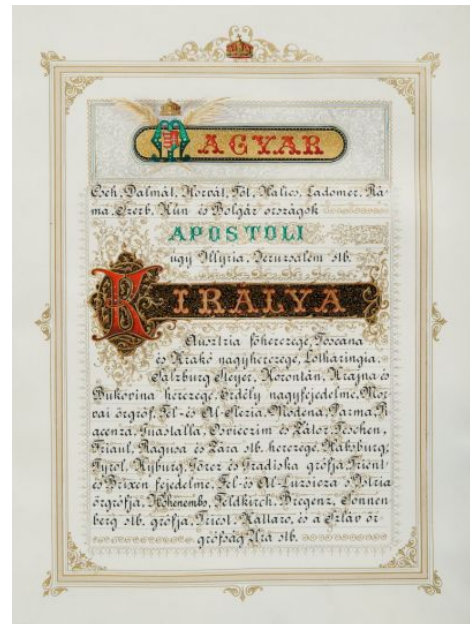 MAGYAR
Cseh, Dalmát, Horvát, Tót, Halics, Ladomer, Rá-
ma, Szerb, Kún és Bolgár országok
APOSTOLI
úgy Illyria, Jeruzsálem stb.
KIRÁLYA
Ausztria főherczege, Toscana
és Krakó nagyherczege, Lotharingia,
Salzburg Steyer, Korontán, Krajna és
Bukovina herczege, Erdély nagyfejedelme, Mor
vai őrgróf, Fel- és Al-Slezia, Modena, Parma, Pi
acenza, Guastalla, Osvieczim és Zátor, Teschen,
Friaul, Ragusa és Zára stb. herczege, Habsburg,
Tyrol, Kyburg, Görcz és Gradiska grófja, Trient
és Brixen fejedelme, Fel- és Al-Luzsicza s Istria
őrgrófja, Hohenembs, Feldkirch, Bregenz, Sonnen
berg stb. grófja, Triest, Kattaro, és a Szláv őr
grófság Ura stb.